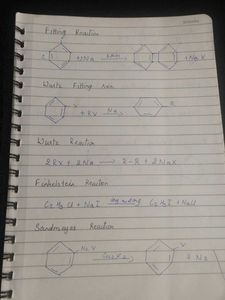 Fitting Reaction
2 + 2Na → + Na X
Wurtz Fitting rxn
X + RX Na → R
Wurtz Reaction
2RX + 2Na → R-R + 2NaX
Finkelstein Reaction
C₂H₅Cl + NaI → C₂H₅I + NaCl
Sandmeyer Reaction
N₂X → X + N₂